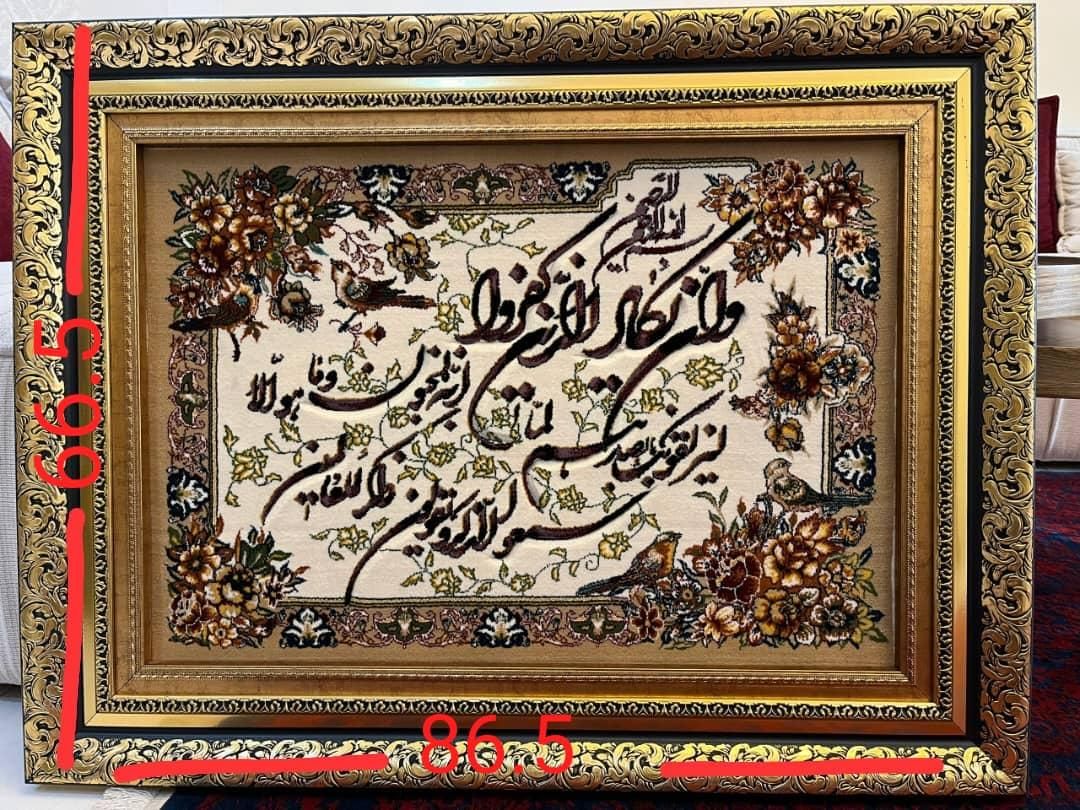 بسم الله الرحمن الرحیم
وان یکاد الذین کفروا
لیزلقونک بابصارهم لمّا
سمعوا الذکر ویقولون
انه لمجنون وما هو الّا
ذکر للعالمین
66.5
86.5